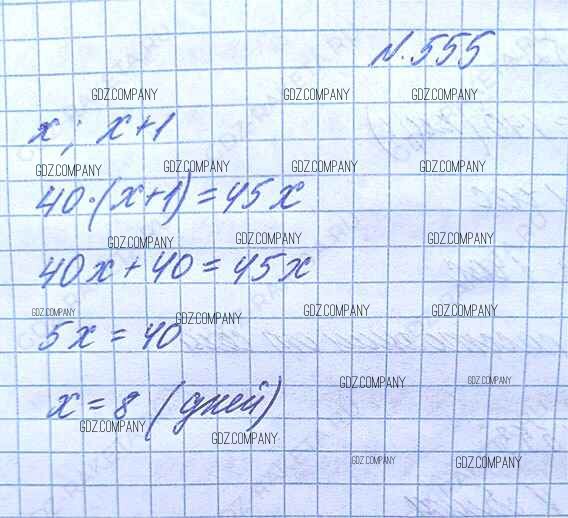 N.555
GDZ.COMPANY GDZ.COMPANY GDZ.COMPANY
x; x+1
GDZ.COMPANY GDZ.COMPANY GDZ.COMPANY GDZ.COMPANY
40·(x+1)=45x
GDZ.COMPANY GDZ.COMPANY GDZ.COMPANY
40x+40=45x
GDZ.COMPANY GDZ.COMPANY GDZ.COMPANY GDZ.COMPANY
5x=40
GDZ.COMPANY GDZ.COMPANY
x=8 (дней)
GDZ.COMPANY GDZ.COMPANY
GDZ.COMPANY GDZ.COMPANY